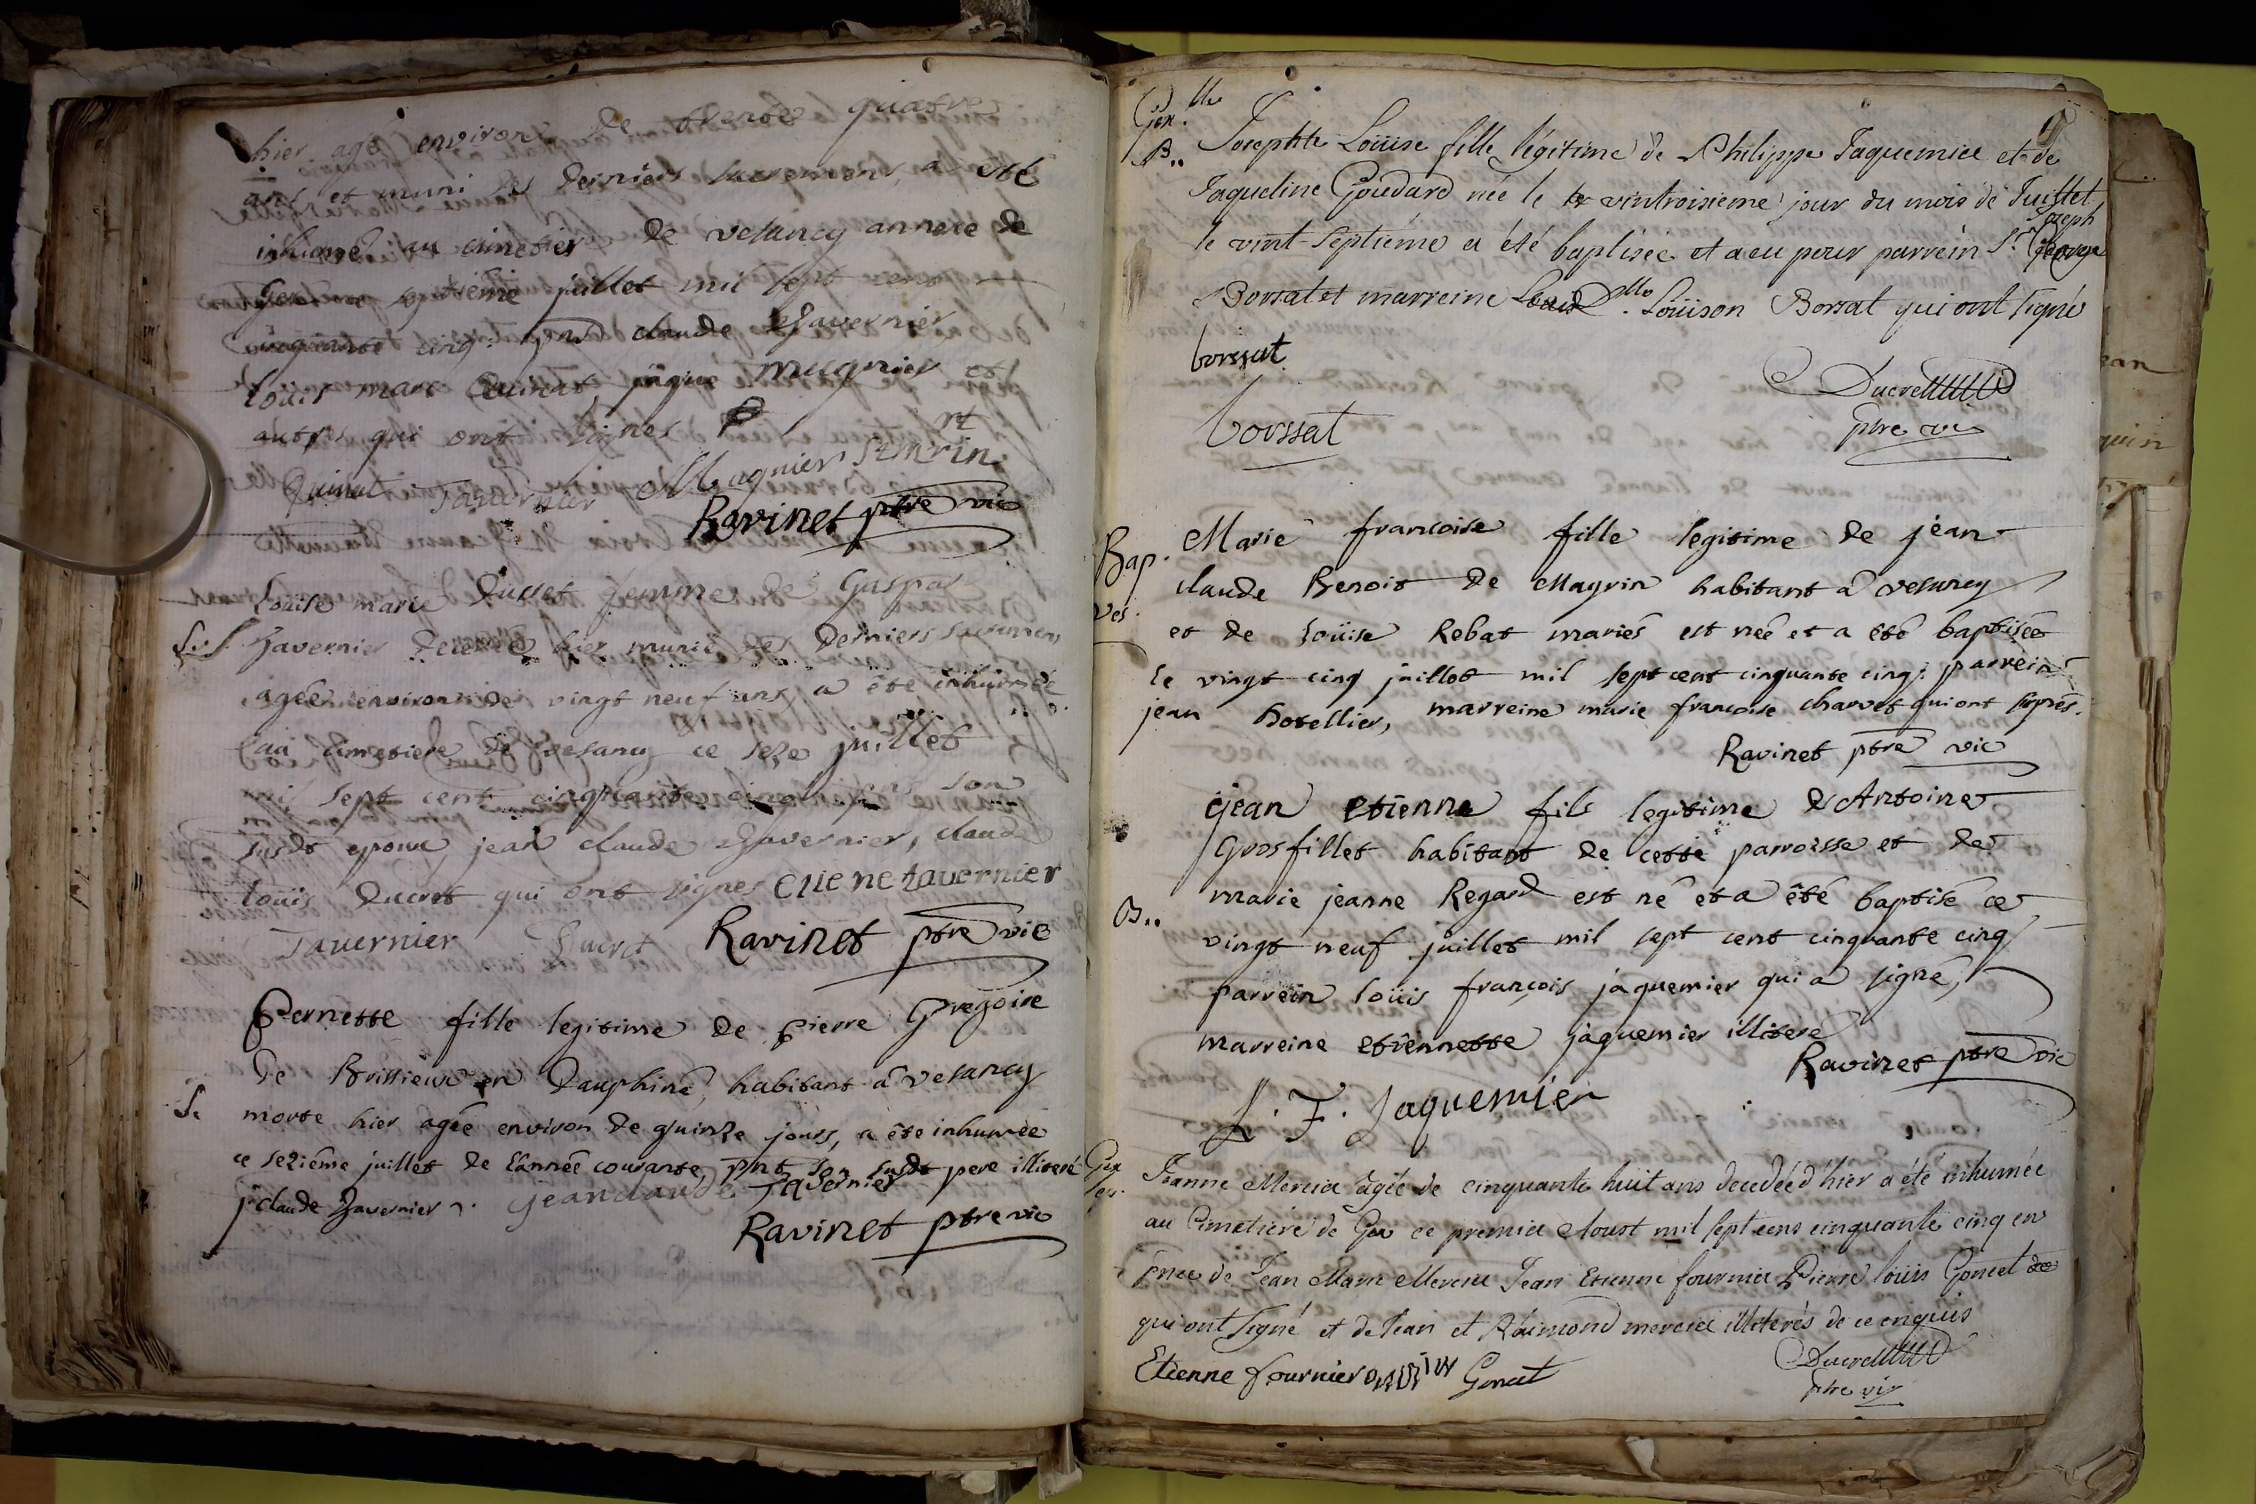 hier agé environ de trente quatre
ans et muni des derniers sacremens, a esté
inhumé au cimetier de vesancy annexe de
Gex ce septième juillet mil sept cent
cinquante cinq. pnt claude Tavernier
Louis marc Quinat jaque mugnier et
autres qui ont signes
Quinat Tavernier Mugnier
Ravinet ptre vic
Louise marie Dusset femme de Gaspar
S. V. Tavernier decedée hier munie des derniers sacremens
agée environ de vingt neuf ans, a été inhumée
au cimetiere de vesancy ce seze juillet
mil sept cent cinquante cinq pnt son
susdt epoux jean claude Tavernier, claude
Louis Ducret qui ont signes Etienne tavernier
Tavernier Ducret Ravinet ptre vic
Pernette fille legitime de pierre Gregoire
de Brissieux en Dauphiné, habitant à vesancy
S. morte hier agée environ de quinze jours, a éte inhumée
ce sezième juillet de l'année courante, pnt son susdt pere illiteré
j claude Tavernier. jean claude Tavernier
Ravinet ptre vic
Gex.
B.. Josephte Loüise fille légitime de Philippe Jaquemier et de
Jaqueline Goudard née le vintroisieme jour du mois de Juillet
Joseph
le vint-septiéme a été baptisée et a eu pour parrein Sr. George
Borsat et marreine Dlle. Loüison Borsat qui ont signé
borssat
borssat
Ducret
ptre vic
Bap. Marie francoise fille legitime de jean
claude Benoit de Mayrin habitant à vesancy
ves. et de Loüise Rebat mariés est née et a été baptisée
le vingt cinq juillet mil sept cent cinquante cinq: parrein
jean hotellier, marreine marie francoise charvet qui ont signés.
Ravinet ptre vic
jean etienne fils legitime d'Antoine
Grosfillet habitant de cette parroisse et de
marie jeanne Regard est né et a été baptisé ce
B.. vingt neuf juillet mil sept cent cinquante cinq
parrein Loüis françois jaquemier qui a signé,
marreine etiennette jaquemier illiteré
Ravinet ptre vic
L. F. Jaquemier
Gex Jeanne Mercier agée de cinquante huit ans decedée d'hier a été inhumée
au Cimetiere de Gex ce premier Aoust mil sept cens cinquante cinq en
pnce de Jean Marie Mercier Jean Etienne fournier Pierre loüis Goncet
qui ont signé et de Jean et Raimond mercier illiterés de ce enquis
Ducret
Etienne fournier Goncet
ptre vic